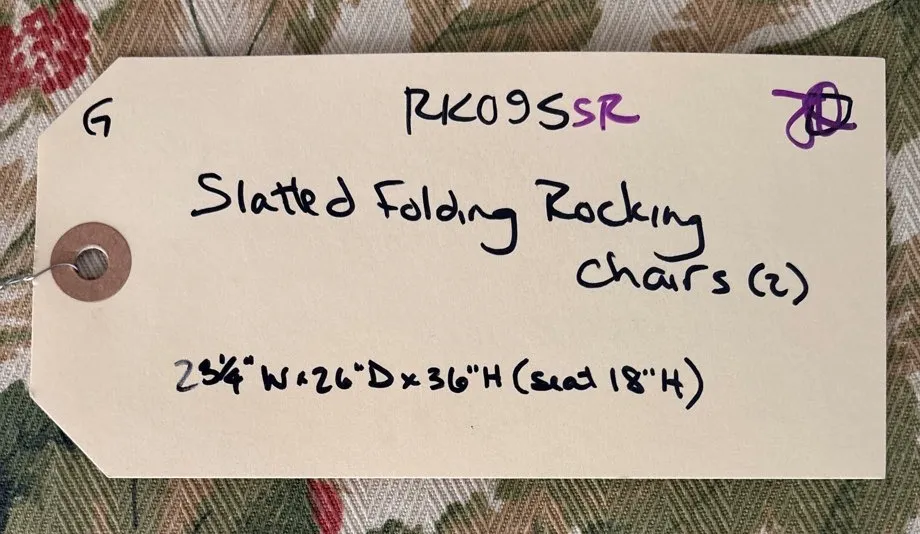 G RK095SR
Slatted Folding Rocking
Chairs (2)
23¼" W x 26" D x 36" H (seat 18" H)